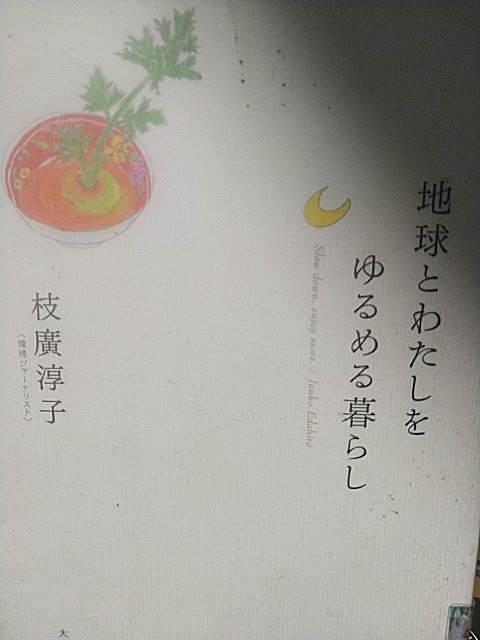 地球とわたしを
ゆるめる暮らし
Slow down, enjoy more. / Junko Edahiro
枝廣淳子
〈環境ジャーナリスト〉
大